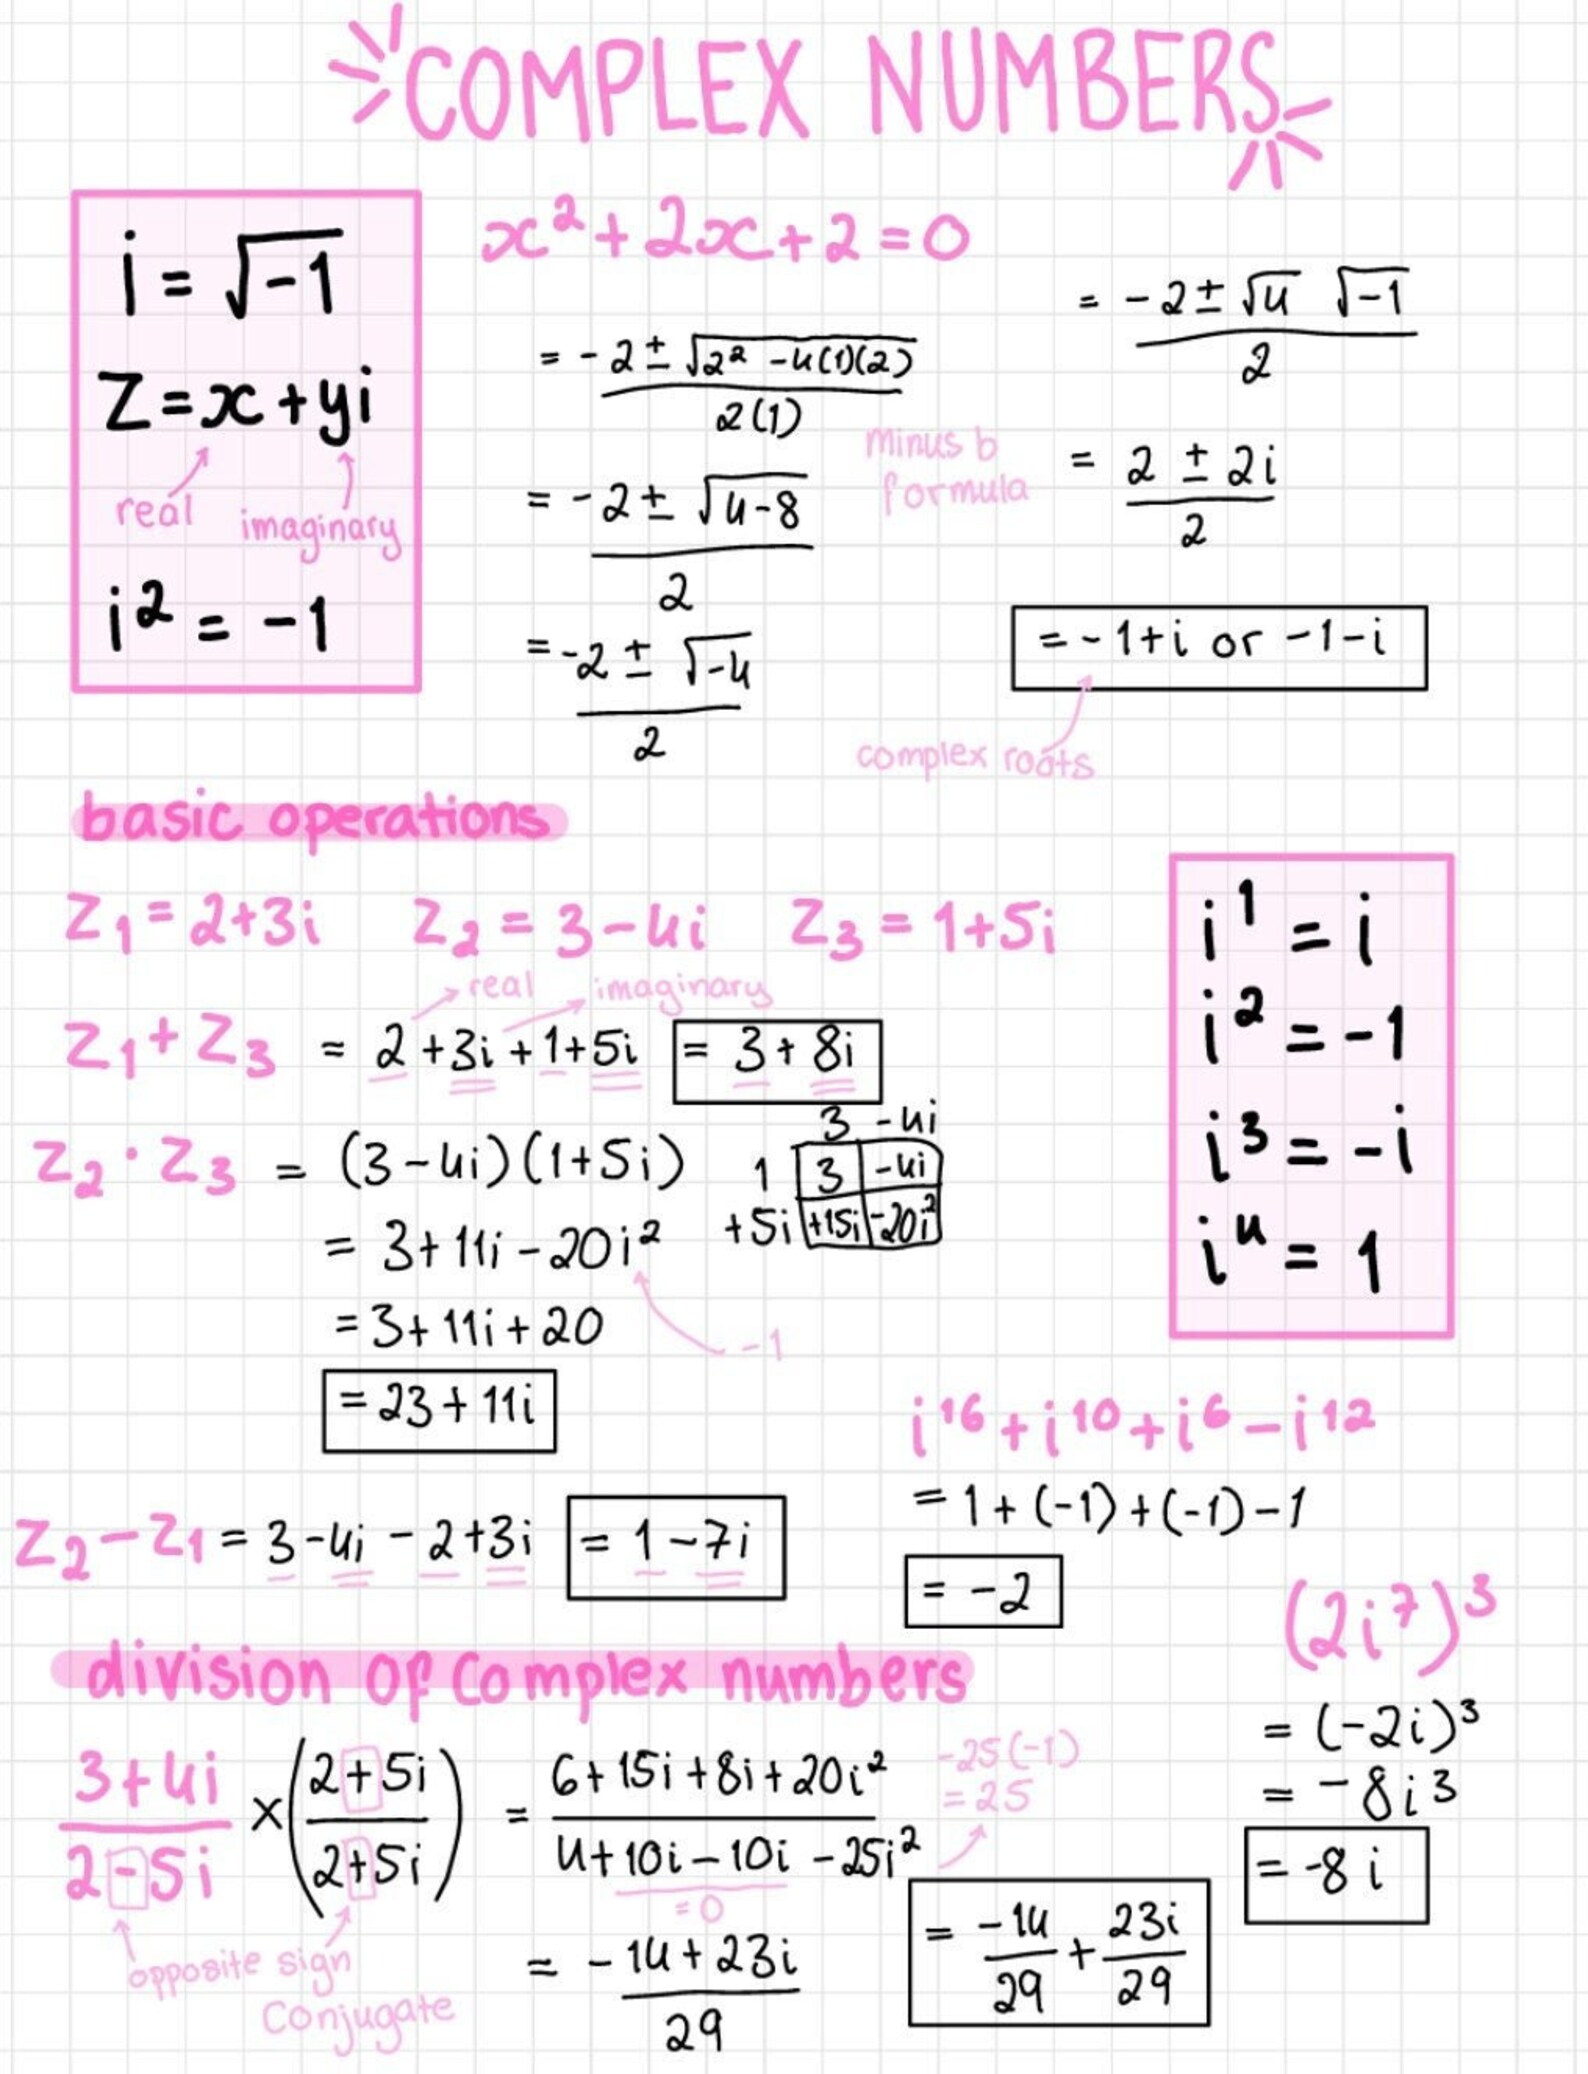 COMPLEX NUMBERS
i = √-1
z = x + yi
real
imaginary
i² = -1
x² + 2x + 2 = 0
= -2 ± √2² - 4(1)(2)
2(1)
= -2 ± √4-8
2
= -2 ± √-4
2
minus b
formula
= -2 ± √4 √-1
2
= 2 ± 2i
2
= -1+i or -1-i
complex roots
basic operations
Z₁ = 2+3i Z₂ = 3-4i Z₃ = 1+5i
real imaginary
Z₁ + Z₃ = 2 + 3i + 1 + 5i = 3 + 8i
Z₂ · Z₃ = (3-4i)(1+5i)
= 3 + 11i - 20i²
= 3 + 11i + 20
-1
= 23 + 11i
3 -4i
1 3 -4i
+5i +15i -20i²
Z₂ - Z₁ = 3 - 4i - 2 + 3i = 1 - 7i
i¹ = i
i² = -1
i³ = -i
i⁴ = 1
i¹⁶ + i¹⁰ + i⁶ - i¹²
= 1 + (-1) + (-1) - 1
= -2
(2i⁷)³
= (-2i)³
= -8i³
= -8i
division of complex numbers
3+4i
2-5i
× (2+5i
2+5i)
= 6 + 15i + 8i + 20i²
4 + 10i - 10i - 25i²
= 0
-25(-1)
= 25
opposite sign
Conjugate
= -14 + 23i
29
= -14 + 23i
29 29